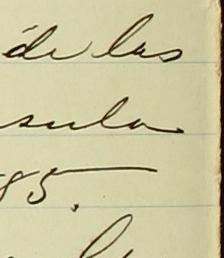 de las
sula
85.